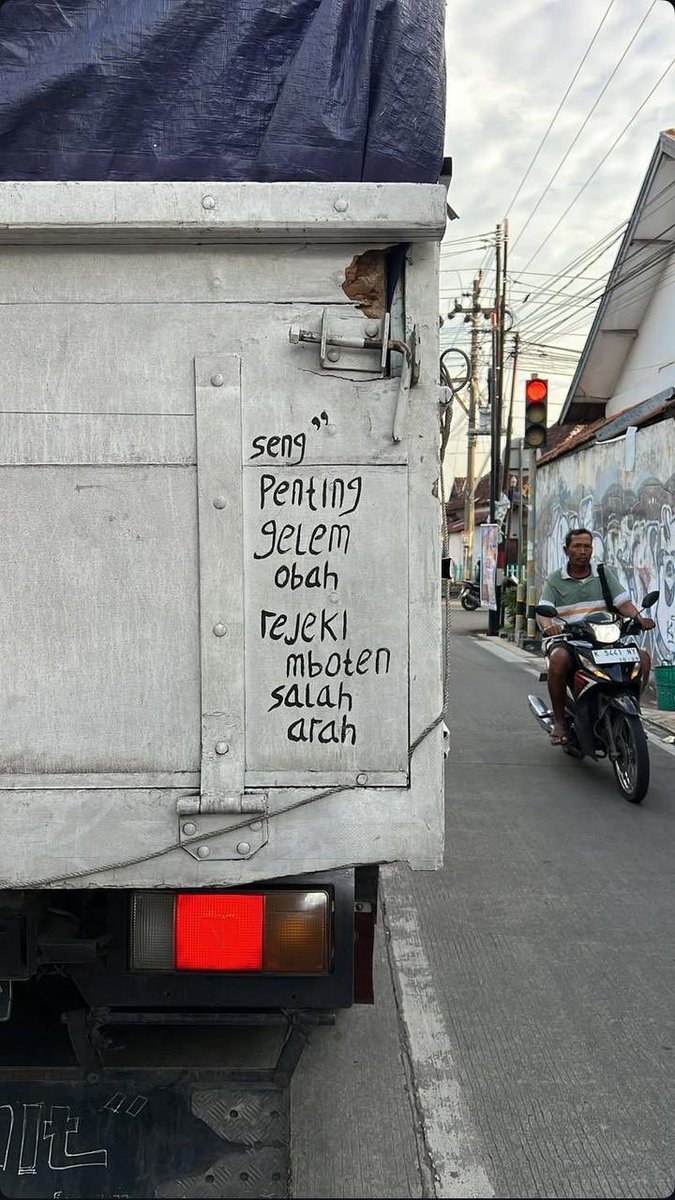 seng"
Penting
gelem
obah
rejeki
mboten
salah
arah